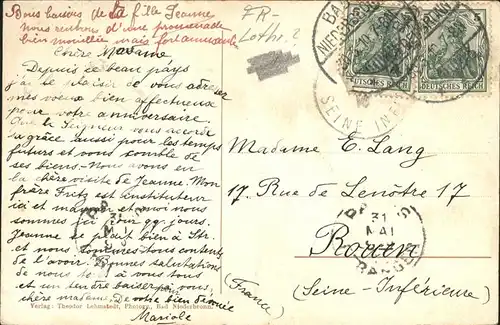 Bons baisers de ta fille Jeanne
nous rentrons d'une promenade
bien mouillée mais fort amusante
FR-
Lothr.?
Chère Madame
Depuis ce beau pays
j'ai le plaisir de vous adresser
mes voeux bien affectueux
pour votre anniversaire.
Que le Seigneur vous accorde
sa grâce aussi pour les temps
futurs et vous comble de
ses biens. Nous avons eu
la chère visite de Jeanne. Mon
frère Fritz est instituteur
ici et maman et moi nous
sommes ici pour qq. jours.
Jeanne se plaît bien à Str.
et nous sommes tous contents
de l'avoir. Bonnes salutations
de nous à vous tous
et un tendre baiser à vous,
chère madame. De votre bien dévouée
Mariele
Verlag: Theodor Lehmstedt, Photogr., Bad Niederbronn.
DEUTSCHES REICH
DEUTSCHES REICH
SEINE INF
Madame E. Lang
17. Rue de Lenôtre 17
31
MAI
Rouen
(Seine-Inférieure)
(France)